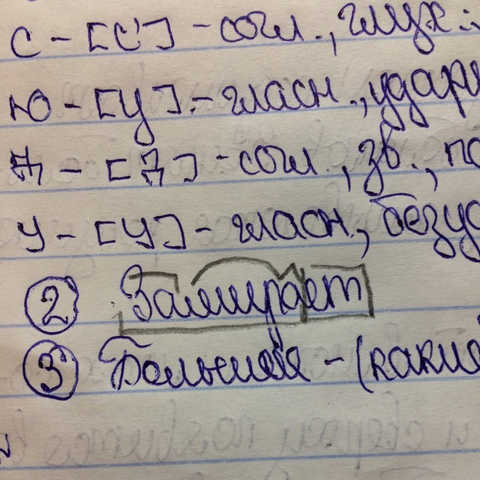 с - [с'] - согл., глух.
ю - [у] - гласн., удар
д - [д] - согл., зв., по
у - [у] - гласн., безуд
② Замирает
③ Большие - (какие